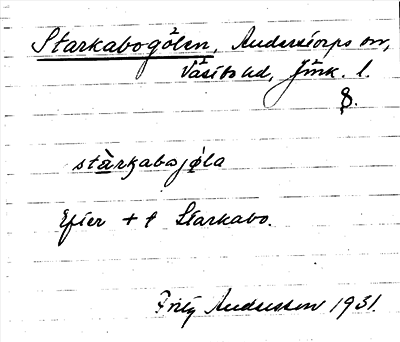 Starkabogölen, Anderstorps sn,
Västbo hd, Jönk. l.
8.
stàrkabojøla
Efter + f Starkabo.
Fritz Andersson 1931.